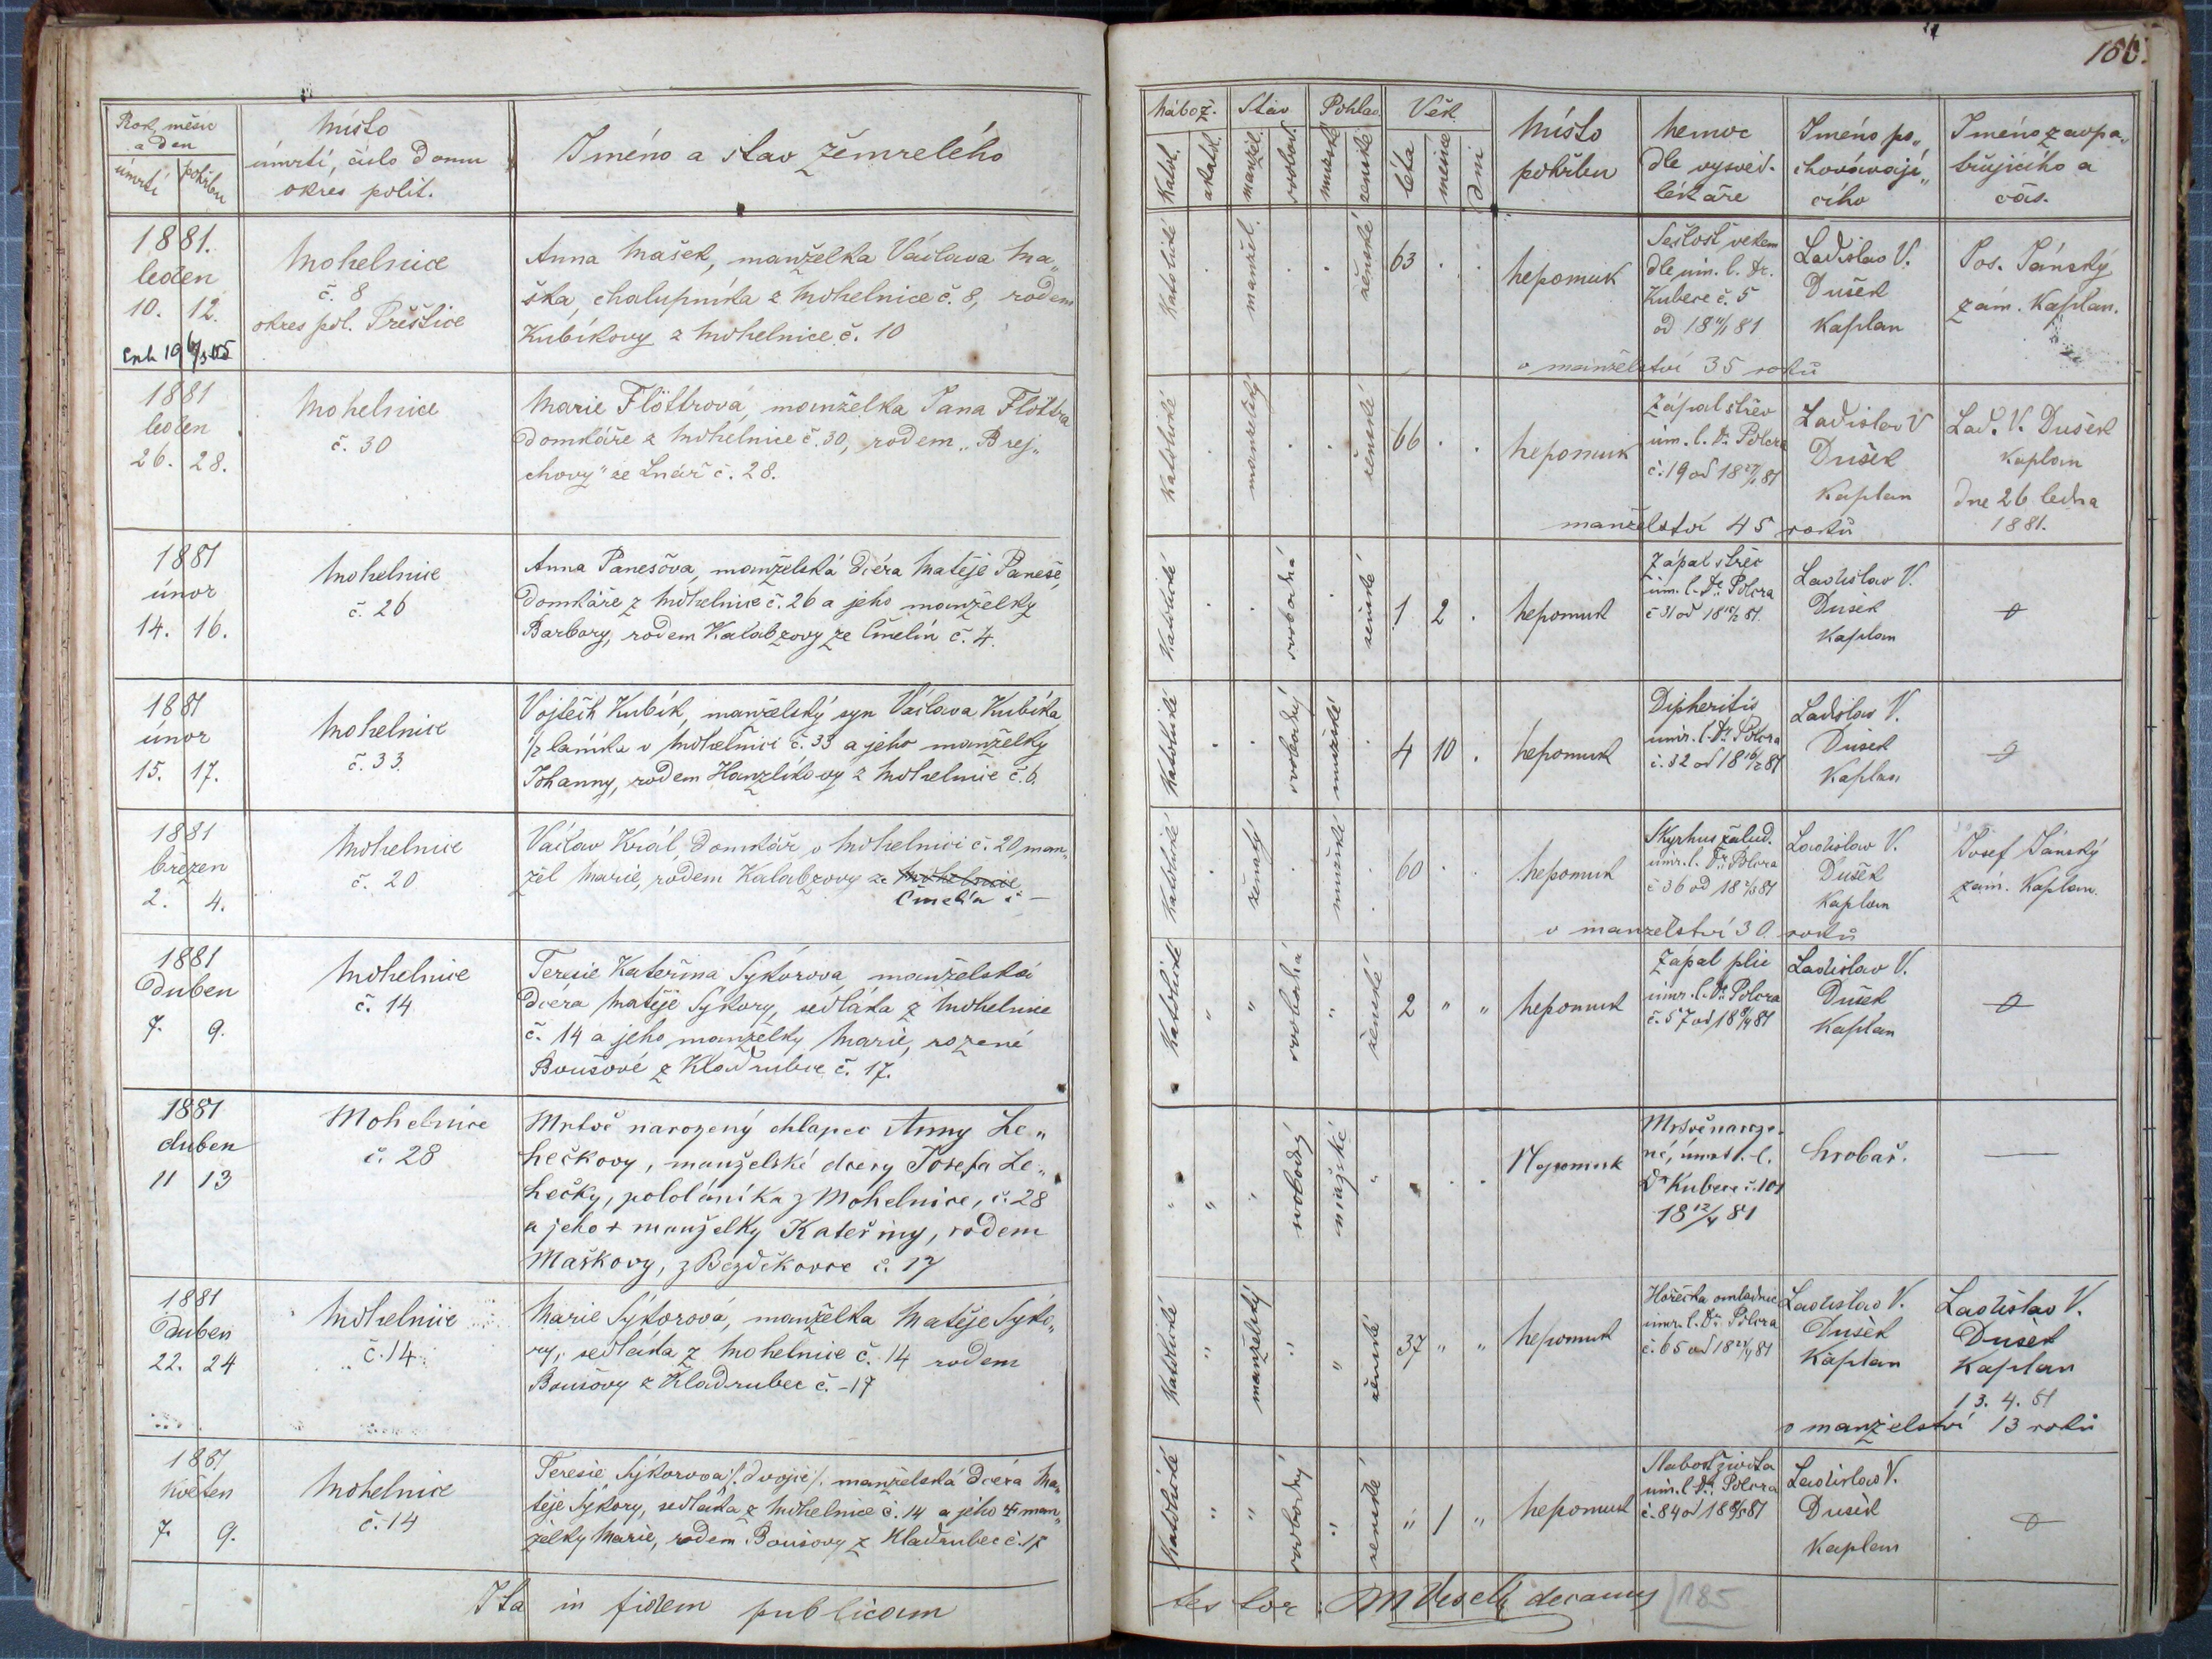 Rok, měsíc
a den
úmrtí pohřbu
Místo
úmrtí, číslo domu
okres polit.
Jméno a stav zemřelého
1881.
leden
10. 12.
Mohelnice
č. 8
okres pol. Přeštice
Anna Mašek, manželka Václava Ma„
ška, chalupníka z Mohelnice č. 8, rodem
Kubíkovy z Mohelnice č. 10
1881
leden
26. 28.
Mohelnice
č. 30
Marie Flöttrová, manželka Jana Flöttra
domkáře z Mohelnice č. 30, rodem „Brej„
chovy" ze Lnář č. 28.
1881
únor
14. 16.
Mohelnice
č. 26
Anna Panešova, manželská dcera Matěje Paneše,
domkáře z Mohelnice č. 26 a jeho manželky
Barbory, rodem Kalabzovy ze Čmelín č. 4.
1881
únor
15. 17.
Mohelnice
č. 33.
Vojtěch Kubík, manželský syn Václava Kubíka,
1/2 laníka v Mohelnici č. 33 a jeho manželky
Johanny, rodem Hanzlíkovy z Mohelnice č. 6.
1881
březen
2. 4.
Mohelnice
č. 20
Václav Král, domkář v Mohelnici č. 20, man„
žel Marie, rodem Kalabzovy ze Mohelnice
Čmelín č –
1881
Duben
7. 9.
Mohelnice
č. 14
Teresie Kateřina Sýkorova, manželská
dcera Matěje Sýkory, sedláka z Mohelnice
č. 14 a jeho manželky Marie, rozené
Boušové z Kladrubce č. 17.
1881
duben
11 13
Mohelnice
č. 28
Mrtvě narozený chlapec Anny Le„
hečkovy, manželské dcery Josefa Le„
hečky, pololáníka z Mohelnice, č. 28
a jeho + manželky Kateřiny, rodem
Maškovy, z Bezděkovce č. 17
1881
Duben
22. 24
Mohelnice
č. 14
Marie Sýkorová, manželka Matěje Sýko„
ry, sedláka z Mohelnice č. 14 rodem
Boušovy z Kladrubec č. –17
1881
květen
7. 9.
Mohelnice
č. 14
Teresie Sýkorova /. dvojče /. manželská dcera Ma„
těje Sýkory, sedláka z Mohelnice č. 14 a jeho + man„
želky Marie, rodem Boušovy z Kladrubec č. 17
Ita in fidem publicam
Nábož. Stav Pohlav. Věk
Katol. akatol. manžel. svobod. mužské ženské léta měsíce dni
Místo
pohřbu
Nemoc
dle vysvěd.
lékaře
Jméno po„
chovávají„
cího
Jméno zaopa„
třujícího a
čas.
Katolické manžel. ženské 63
Nepomuk
Sešlost věkem
dle úm. l. Dr.
Kubece č. 5
od 18 11/1 81
Ladislav V.
Dušek
Kaplan
Jos. Jánský
zám. Kaplan.
v manželství 35 roků
Katolické manželský ženské 66
Nepomuk
Zápal střev
úm. l. Dr. Polcra
č. 19 od 18 27/1 81
Ladislav V
Dušek
Kaplan
Lad. V. Dušek
Kaplan
dne 26 ledna
1881.
manželství 45 roků
Katolické svobodná ženské 1 2
Nepomuk
Zápal střev
úm. l. Dr. Polcra
č 31 od 18 15/2 81.
Ladislav V.
Dušek
Kaplan
Katolické svobodný mužské 4 10
Nepomuk
Dipheritis
úmr. l. Dr. Polcra
č. 32 od 18 16/2 81
Ladislav V.
Dušek
Kaplan
Katolické ženatý mužské 60
Nepomuk
Skyrhus žalud.
úmr. l. Dr. Polcra
č 36 od 18 2/3 81
Ladislav V.
Dušek
Kaplan
Josef Jánský
zám. Kaplan.
v manželství 30 roků
Katolické " " svobodná " ženské 2 " "
Nepomuk
Zápal plic
úmr. l. Dr. Polcra
č. 57 od 18 8/4 81
Ladislav V.
Dušek
Kaplan
" " " svobodný mužské "
Nepomuk
Mrtvě naroze-
né, úmrt. l.
Dr Kubece č. 101
18 12/4 81
hrobař.
Katolické " manželský " " ženské 37 " "
Nepomuk
Horečka omladnic
úmr. l. Dr. Polcra
č. 65 od 18 23/4 81
Ladislav V.
Dušek
Kaplan
Ladislav V.
Dušek
Kaplan
13. 4. 81
v manželství 13 roků
Katolické " " svobodný " ženské " 1 "
Nepomuk
Slabost života
úm. l. Dr. Polcra
č. 84 od 18 8/5 81
Ladislav V.
Dušek
Kaplan
testor: M Veselý decanus
185